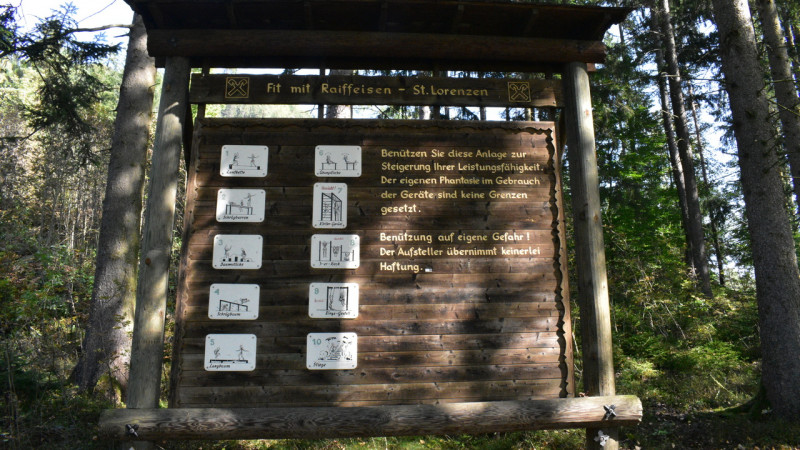 Fit mit Raiffeisen - St. Lorenzen
Benützen Sie diese Anlage zur
Steigerung Ihrer Leistungsfähigkeit.
Der eigenen Phantasie im Gebrauch
der Geräte sind keine Grenzen
gesetzt.
Benützung auf eigene Gefahr!
Der Aufsteller übernimmt keinerlei
Haftung.
4
5
8
10